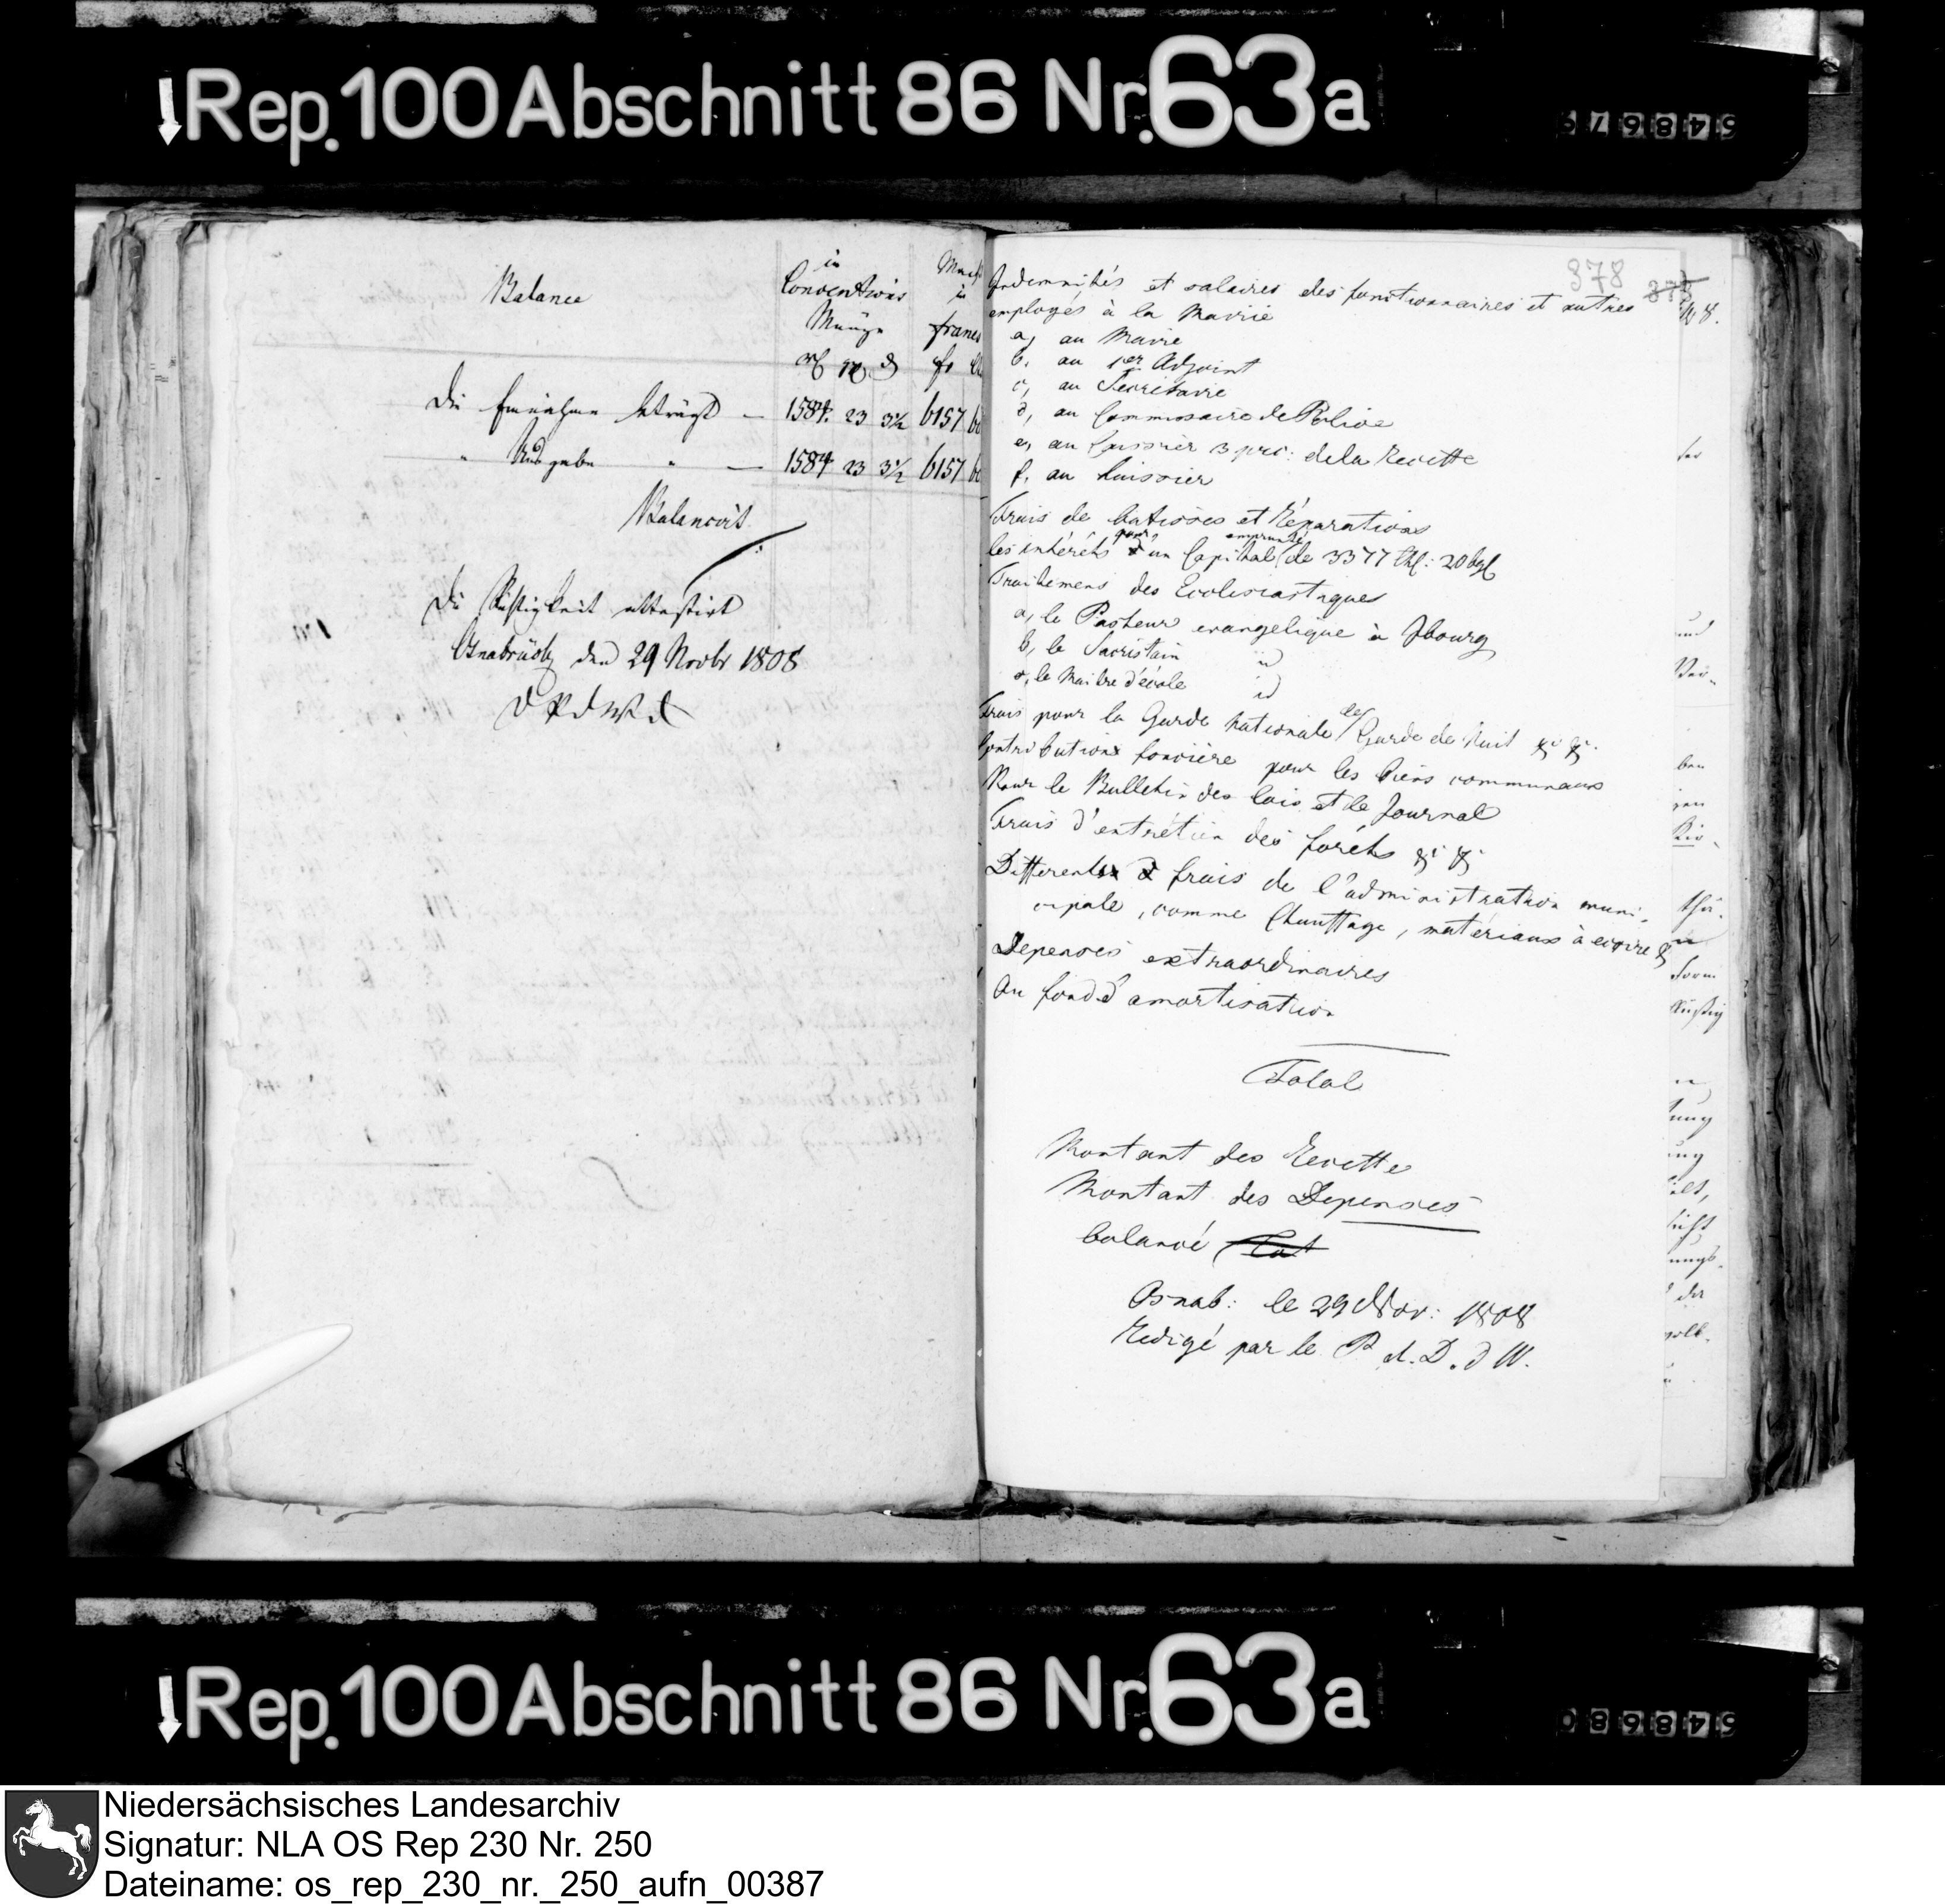 Rep. 100 Abschnitt 86 Nr. 63a
Balance
in
Conventions
Münze
in
francs
Die Einnahme beträgt — 1584. 23 3½ 6157
" Ausgabe " — 1584 23 3½ 6157
Balancirt.
Die Richtigkeit attestirt
Osnabrück den 29 Novbr 1808
D P d W D
378
Indemnités et salaires des fonctionnaires et autres
employés à la Mairie
a, au Maire
b. au 1er Adjoint
c, au Secrétaire
d, au Commissaire de Police
e, au Caissier 3 prc: de la Recette
f. au huissier
Frais de batisses et Réparations
les intérêts pour un Capital emprunté de 3377 thl: 20 bgl
Traitemens des Ecclesiastiques
a, le Pasteur evangelique à Ibourg
b, le Sacristain id
c, le Maitre d'école id
Frais pour la Garde nationale des Garde de Nuit & &.
Contributions foncière pour les biens communaux
Pour le Bulletin des lois et le Journal
Frais d'entrétien des foréts & &
Differents frais de l'administration muni-
cipale, comme Chauffage, matériaux à ecrire &
Depenses extraordinaires
Au fond d'amortisation
Total
Montant des Recette
Montant des Depenses
balancé
Osnab: le 29 Nov: 1808
Redigé par le P. d. D. d W.
Rep. 100 Abschnitt 86 Nr. 63a
Niedersächsisches Landesarchiv
Signatur: NLA OS Rep 230 Nr. 250
Dateiname: os_rep_230_nr._250_aufn_00387